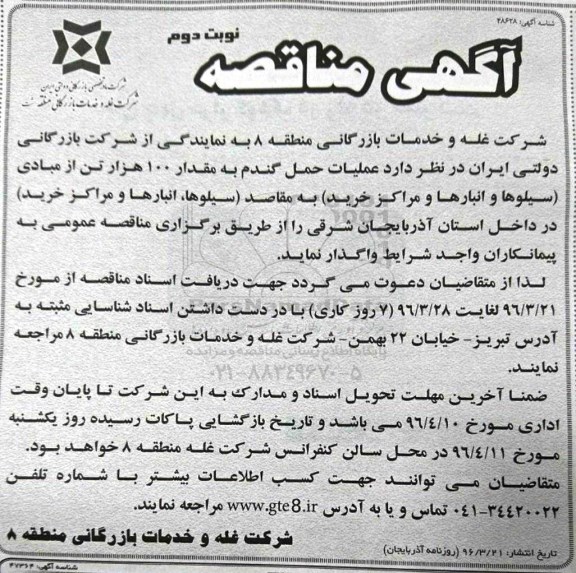 شناسه آگهی: ۲۸۶۲۸
نوبت دوم
آگهی مناقصه
شرکت مادر تخصصی بازرگانی دولتی ایران
شرکت غله و خدمات بازرگانی منطقه هشت
شرکت غله و خدمات بازرگانی منطقه ۸ به نمایندگی از شرکت بازرگانی
دولتی ایران در نظر دارد عملیات حمل گندم به مقدار ۱۰۰ هزار تن از مبادی
(سیلوها و انبارها و مراکز خرید) به مقاصد (سیلوها، انبارها و مراکز خرید)
در داخل استان آذربایجان شرقی را از طریق برگزاری مناقصه عمومی به
پیمانکاران واجد شرایط واگذار نماید.
لذا از متقاضیان دعوت می گردد جهت دریافت اسناد مناقصه از مورخ
۹۶/۳/۲۱ لغایت ۹۶/۳/۲۸ (۷ روز کاری) با در دست داشتن اسناد شناسایی مثبته به
آدرس تبریز- خیابان ۲۲ بهمن- شرکت غله و خدمات بازرگانی منطقه ۸ مراجعه
نمایند.
ضمنا آخرین مهلت تحویل اسناد و مدارک به این شرکت تا پایان وقت
اداری مورخ ۹۶/۴/۱۰ می باشد و تاریخ بازگشایی پاکات رسیده روز یکشنبه
مورخ ۹۶/۴/۱۱ در محل سالن کنفرانس شرکت غله منطقه ۸ خواهد بود.
متقاضیان می توانند جهت کسب اطلاعات بیشتر با شماره تلفن
۰۴۱-۳۴۴۲۰۰۲۲ تماس و یا به آدرس www.gte8.ir مراجعه نمایند.
شرکت غله و خدمات بازرگانی منطقه ۸
تاریخ انتشار: ۹۶/۳/۲۱ (روزنامه آذربایجان)
شناسه آگهی: ۴۷۳۶۴
ParsNamadData
پایگاه اطلاع رسانی مناقصه و مزایده
۰۲۱-۸۸۳۴۹۶۷۰-۵